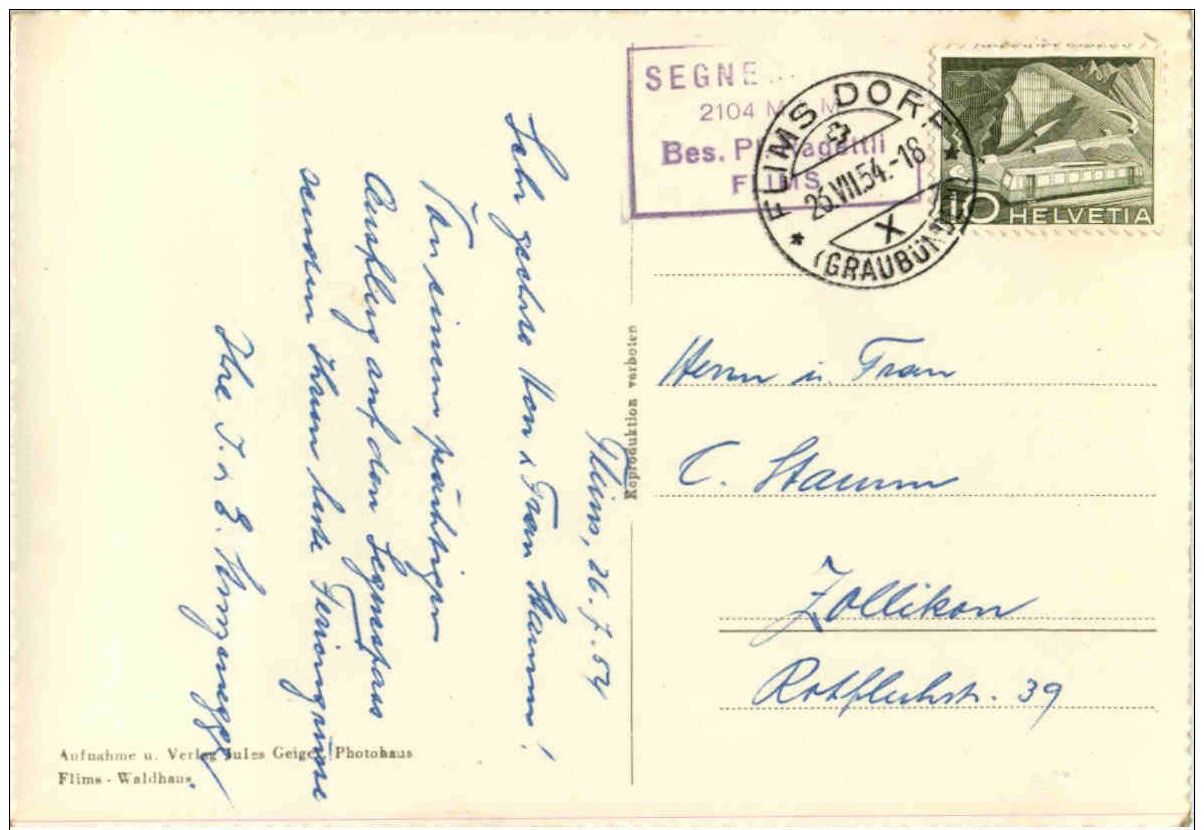 Flims, 26.7.54
Sehr geehrte Herr & Frau Stamm!
Von einem prächtigen
Ausflug auf den Segnespass
senden Ihnen beste Feriengrüsse
Ihre J. & E.
Aufnahme u. Verlag Jules Geiger, Photohaus
Flims - Waldhaus.
Reproduktion verboten
SEGNE
2104 M
Bes.
FLIMS
FLIMS DORF
26.VII.54.-18
X
(GRAUBÜND
10 HELVETIA
Herrn u. Frau
C. Stamm
Zollikon
Rotfluhstr. 39